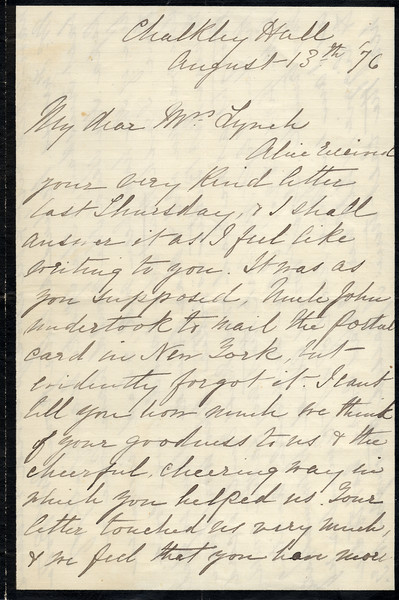 Chalkley Hall
August 13th '76
My dear Mrs Lynch
Alice received
your very kind letter
last Thursday, & I shall
answer it as I feel like
writing to you. It was as
you supposed, Uncle John
undertook to mail the postal
card in New York, but
evidently forgot it. I can't
tell you how much we think
of your goodness to us & the
cheerful, cheering way in
which you helped us. Your
letter touched us very much,
& we feel that you have more